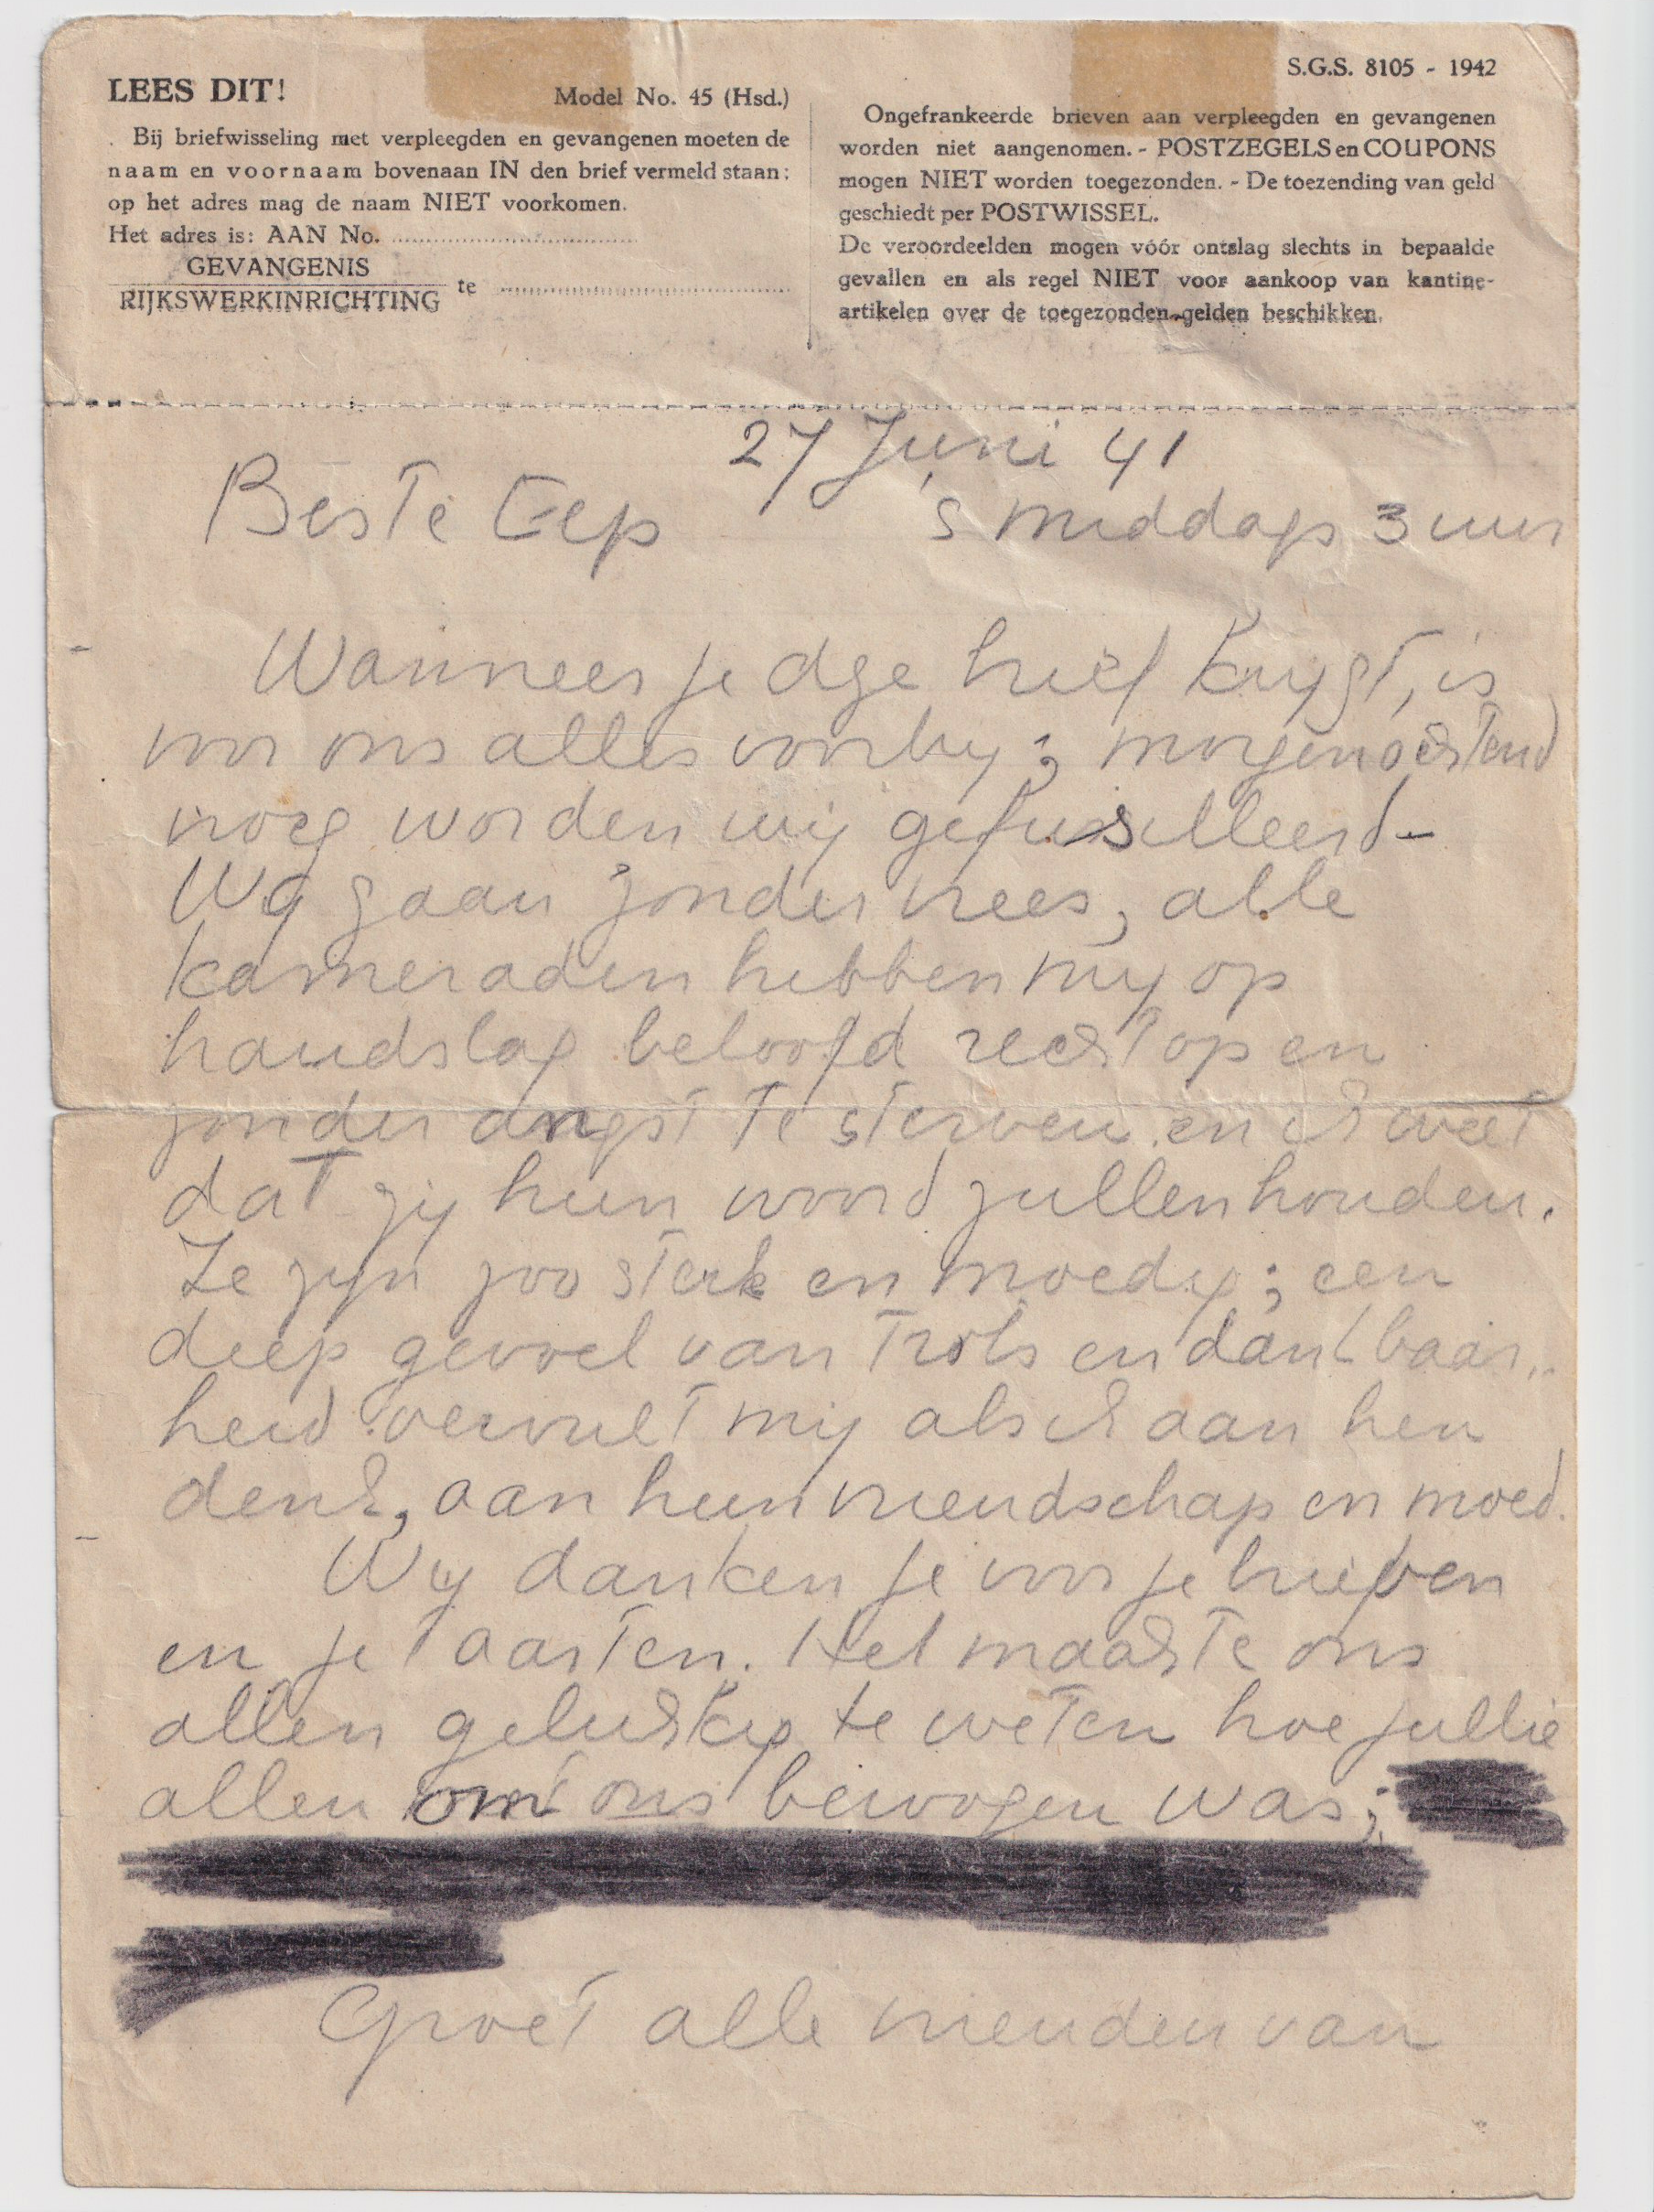 LEES DIT!
Model No. 45 (Hsd.)
Bij briefwisseling met verpleegden en gevangenen moeten de
naam en voornaam bovenaan IN den brief vermeld staan:
op het adres mag de naam NIET voorkomen.
Het adres is: AAN No. ........................
GEVANGENIS
RIJKSWERKINRICHTING te ........................
S.G.S. 8105 - 1942
Ongefrankeerde brieven aan verpleegden en gevangenen
worden niet aangenomen. - POSTZEGELS en COUPONS
mogen NIET worden toegezonden. - De toezending van geld
geschiedt per POSTWISSEL.
De veroordeelden mogen vóór ontslag slechts in bepaalde
gevallen en als regel NIET voor aankoop van kantine-
artikelen over de toegezonden gelden beschikken.
27 Juni 41
Beste Eep 's middags 3 uur
Wanneer je dge brief krygt, is
voor ons alles voorby; morgenochtend
vroeg worden wij gefusilleerd-
Wy gaan zonder vrees, alle
kameraden hebben my op
handslag beloofd rechtop en
zonder angst te sterven en ik weet
dat zij hun woord zullen houden.
Ze zyn zoo sterk en moedig; een
diep gevoel van trots en dankbaar-
heid vervult mij als ik aan hen
denk, aan hun vriendschap en moed.
Wij danken je voor je brieven
en je taarten. Het maakte ons
allen gelukkig te weten hoe jullie
allen om ons bewogen was;
Groet alle vrienden van